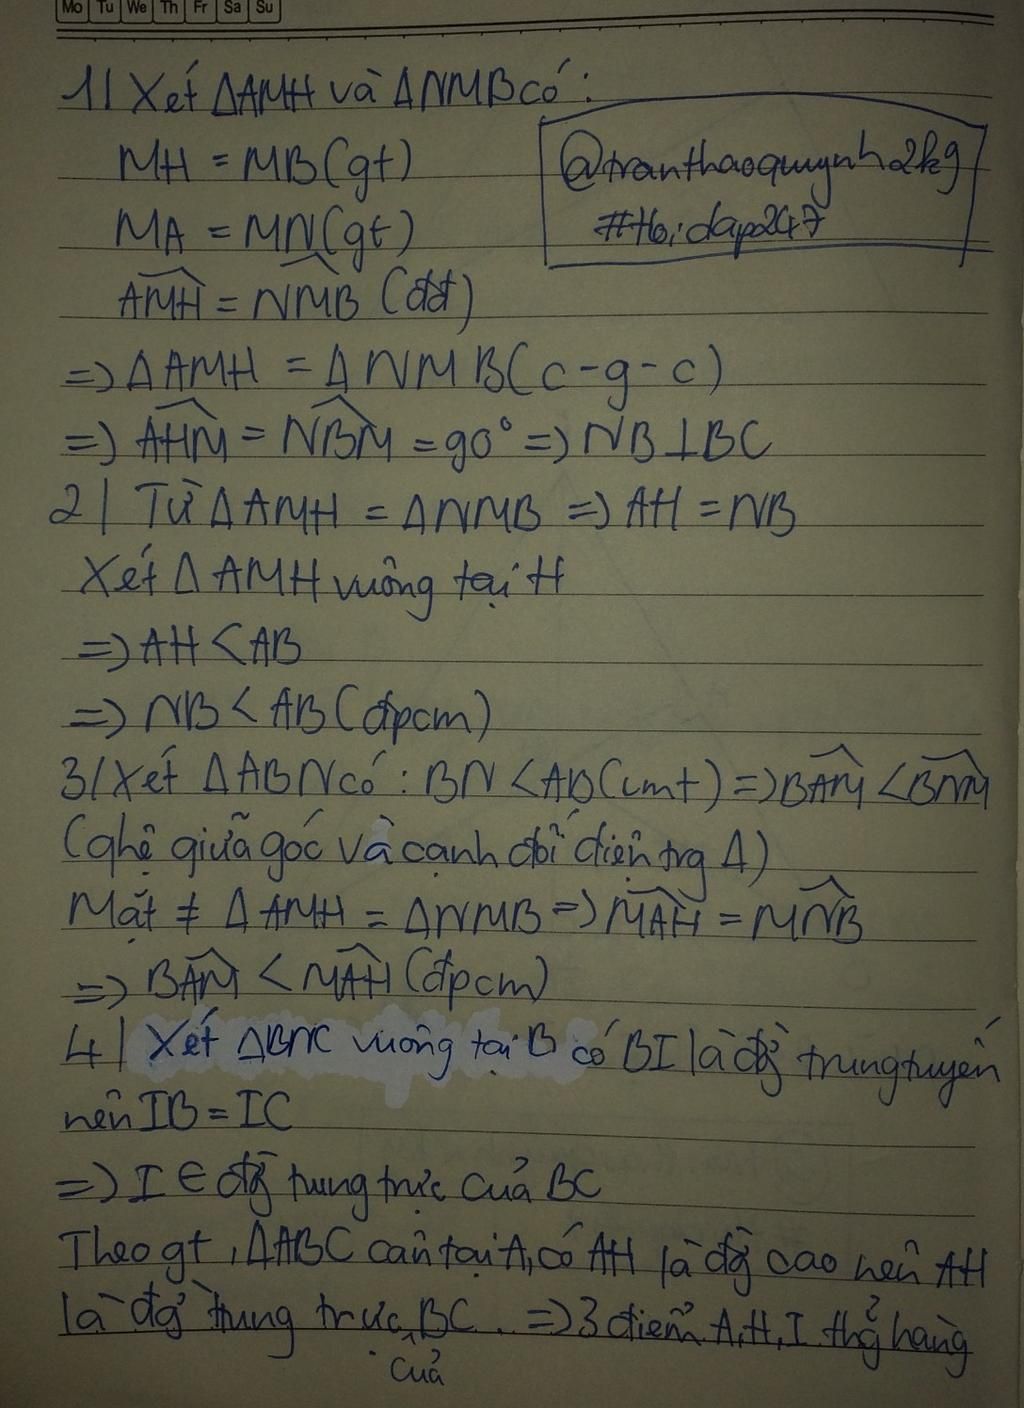 Mo Tu We Th Fr Sa Su
1/ Xét ΔAMH và ΔNMB có:
MH = MB (gt)
@tranthaoquynh2kg
MA = MN (gt)
#Hoidap247
AMH = NMB (đđ)
=> ΔAMH = ΔNMB (c-g-c)
=> AHM = NBM = 90° => NB ⊥ BC
2/ Từ ΔAMH = ΔNMB => AH = NB
Xét ΔAMH vuông tại H
=> AH < AB
=> NB < AB (đpcm)
3/ Xét ΔABN có: BN < AB (cmt) => BAM < BNM
(qhệ giữa góc và cạnh đối diện trg Δ)
Mặt ≠ ΔAMH = ΔNMB => MAH = MNB
=> BAM < MAH (đpcm)
4/ Xét ΔBNC vuông tại B có BI là đg trung tuyến
nên IB = IC
=> I ∈ đg trung trực của BC
Theo gt, ΔABC cân tại A, có AH là đg cao nên AH
là đg trung trực của BC. => 3 điểm A, H, I thẳg hàng